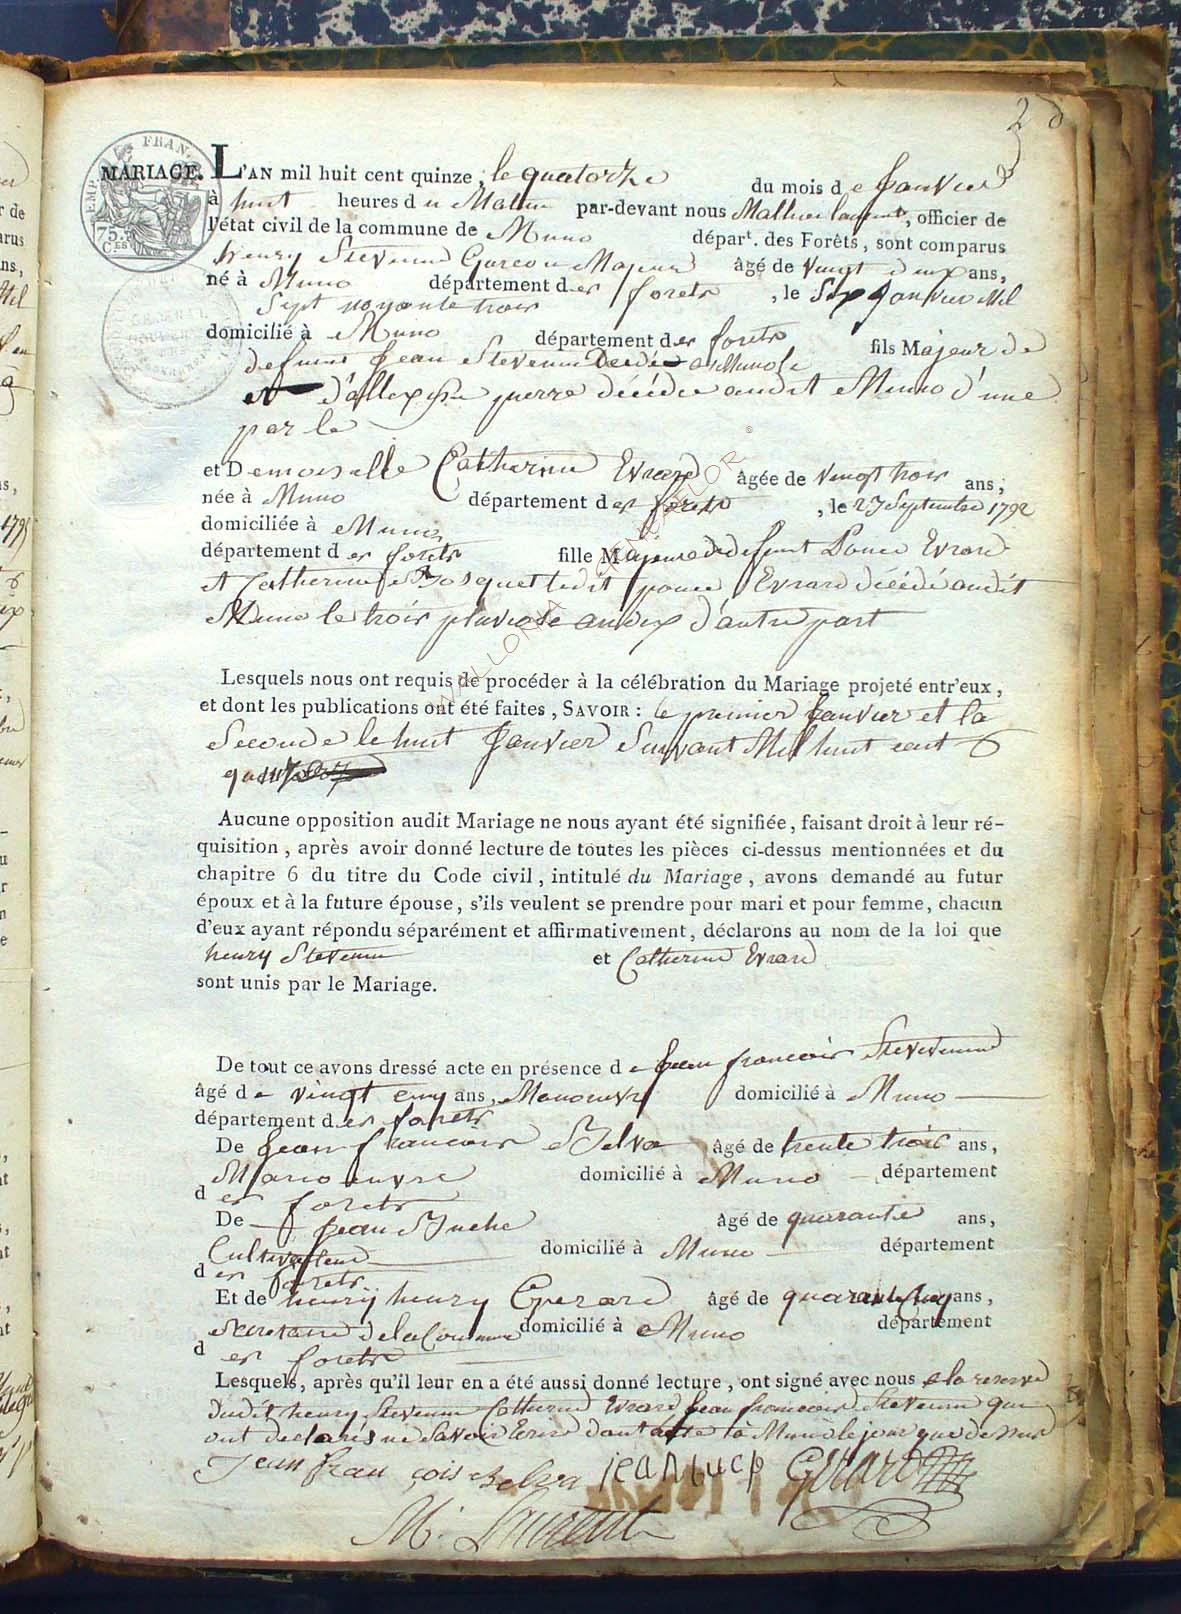 28
MARIAGE. L'AN mil huit cent quinze, le quatorze du mois de Janvier
à huit heures du Matin par-devant nous Mathieu Laurent, officier de
l'état civil de la commune de Muno départ. des Forêts, sont comparus
henry Stevenin Garcon Majeur âgé de vingt deux ans,
né à Muno département des forets, le Six Janvier Mil
Sept nonante trois
domicilié à Muno département des forets fils Majeur de
defunt Jean Stevenin Decedé a Muno le
et d'allexise pierre décédée audit Muno d'une
par le
et Demoiselle Catherine Evrard âgée de vingt trois ans,
née à Muno département des forets, le 27 Septembre 1792
domiciliée à Muno
département des forets fille Majeure de defunt Ponce Evrard
et Catherine Bosquet ledit ponce Evrard décédé audit
Muno le trois pluviose an dix d'autre part
Lesquels nous ont requis de procéder à la célébration du Mariage projeté entr'eux,
et dont les publications ont été faites, SAVOIR : le premier Janvier et la
Seconde le huit Janvier Suivant Mil huit cent
quinze
Aucune opposition audit Mariage ne nous ayant été signifiée, faisant droit à leur ré-
quisition, après avoir donné lecture de toutes les pièces ci-dessus mentionnées et du
chapitre 6 du titre du Code civil, intitulé du Mariage, avons demandé au futur
époux et à la future épouse, s'ils veulent se prendre pour mari et pour femme, chacun
d'eux ayant répondu séparément et affirmativement, déclarons au nom de la loi que
henry Stevenin et Catherine Evrard
sont unis par le Mariage.
De tout ce avons dressé acte en présence de Jean francois Stevenin
âgé de vingt cinq ans, Manouvre domicilié à Muno
département des forets
De Jean francois Belva âgé de trente trois ans,
Manouvre domicilié à Muno département
des forets
De Jean Buche âgé de quarante ans,
Cultivateur domicilié à Muno département
des forets
Et de henry henry Gerard âgé de quarante cinq ans,
Secretaire de la Commune domicilié à Muno département
des forets
Lesquels, après qu'il leur en a été aussi donné lecture, ont signé avec nous a la reserve
dudit henry Stevenin Catherine Evrard Jean francois Stevenin qui
ont declarés ne Savoir Ecrire dont acte à Muno le jour que dessus
Jean fran çois Belva jean bucp Gerard
M. Laurent
EMP. FRAN.
75.
C.ES
WALLONIA GENEALOR ©